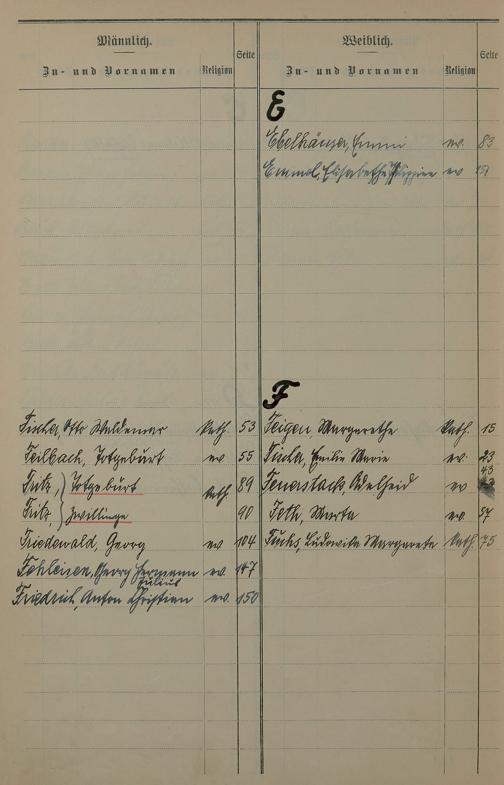 Männlich.
Zu- und Vornamen
Religion
Seite
Fischer, Otto Waldemar kath. 53
Feilbach, Totgeburt ev 55
Fritz, } Totgeburt kath 89
Fritz, } Zwillinge 90
Friedewald, Georg ev 104
Fehleisen, Georg Hermann ev. 147
Julius
Friedrich, Anton Christian ev. 150
Weiblich.
Zu- und Vornamen
Religion
Seite
E
Ebelhäuser, Emmi ev. 83
Emmel, Elisabethe ev 151
F
Feigen, Margarethe kath. 15
Fischer, Emilie Marie ev. 23
Feuerstack, Adelheid ev 43
Feth, Marta ev 57
Fuchs, Ludowika Margareta kath. 75